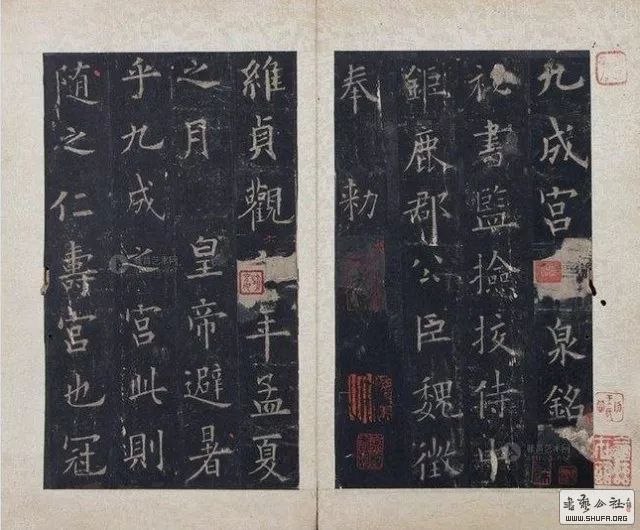 九成宮 泉銘
秘書監撿挍侍中
鉅鹿郡公臣魏徵
奉 勑
維貞觀 年孟夏
之月 皇帝避暑
乎九成之宮此則
隨之仁壽宮也冠
WWW.SHUFA.ORG